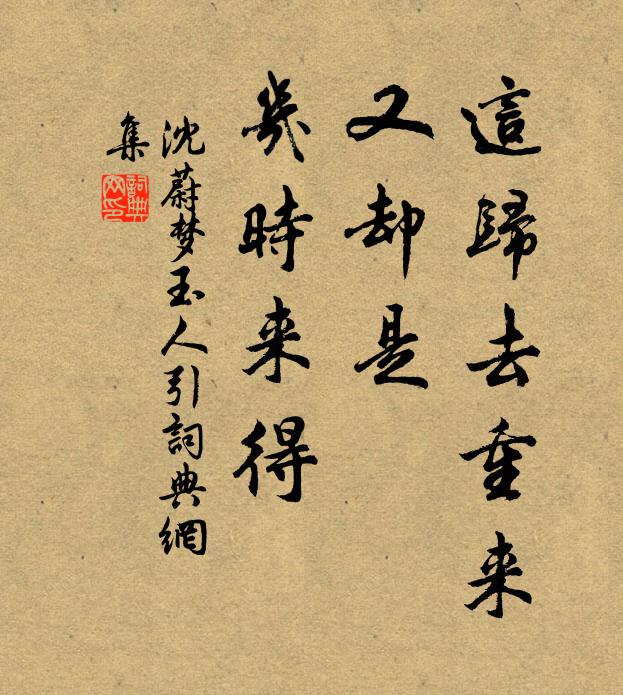 這歸去重来
又却是
幾時来得
沈蔚梦玉人引詞典網
集
詞典
网印